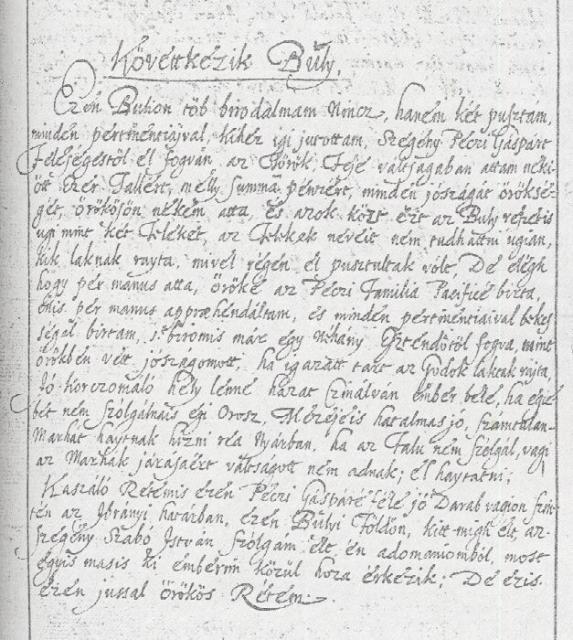 Követtkezik Buly.
Ezen Bulion töb birodalmam Nincz, hanem két pusztam,
minden pertinentiajval, kikhez igi jutottam, Szegény Péczi Gáspárt
Feleségestöl el fogván, az Török, Feje valtsagaban attam neki
ött Ezer Tallért, melly summa pénzért, minden jószagát öröksé-
gét, örökösön nékem atta, és azok közt ezt az Buly reszetis
ugi mint két teleket, az telekek neveit nem tudhattni ugian,
kik laknak rayta, mivel régen el pusztultak vólt, De elégh
hogy per manus atta, öröké az Péczi Familia Pacificé birta,
énis per manus appraehendáltam, és minden pertinentiaival békes-
ségel birtam, s biromis már egy néhány Esztendötöl fogva, mint
örökben vett jószagomott, ha igazatt tart az Godok laktak rajta,
Jó korczomáló hely lenne házat szinálván ember bele, ha egie-
bet nem szolgálnais egi Orosz, Mezejeis hatalmas jó, számtalan
Marhát haytnak hizni réa Nyárban, ha az Falu nem szolgál, vagi
az Marhák járásaért váltsagott nem adnak; el haytatni;
Kaszáló Rétemis ezen Péczi Gáspáré féle jó Darab vagion szin-
tén az Istványi határban, ezen Bulyi Földön, kitt migh élt az
szegény Szabó István szolgám élt, én adomaniomból, most
égyis masis ki emberim közül hozá érkezik; De ezis
ezen jussal örökös Rétem.